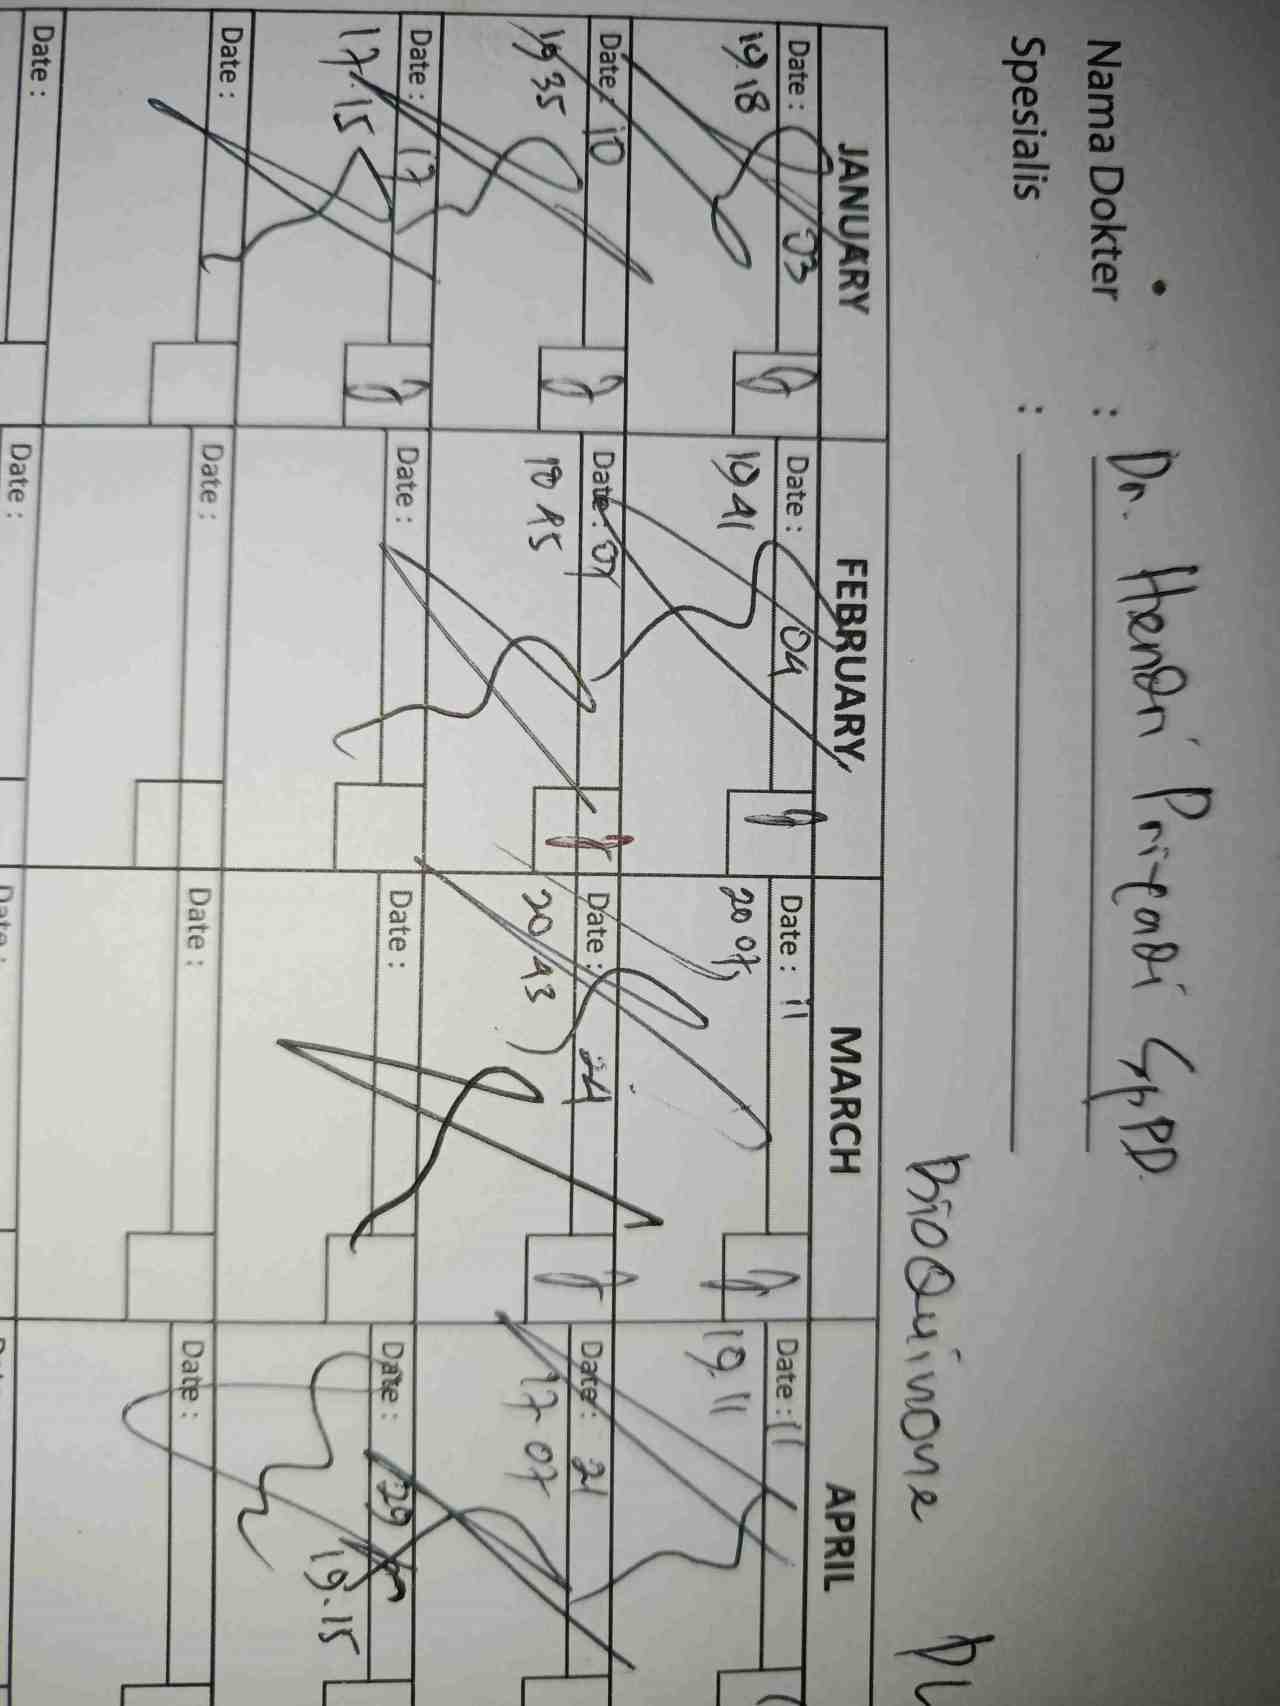 Nama Dokter : Dr. Hendri Priyadi SpPD.
Spesialis :
BioQuinone
JANUARY FEBRUARY MARCH APRIL
Date : 03 Date : 04 Date : 11 Date : 11
19.18 19 41 20 07 19.11
Date : 10 Date : 07 Date : 24 Date : 21
19 35 19 45 20 43 17 07
Date : 17 Date : Date : Date : 29
17.15 19.15
Date : Date : Date : Date :
Date : Date :